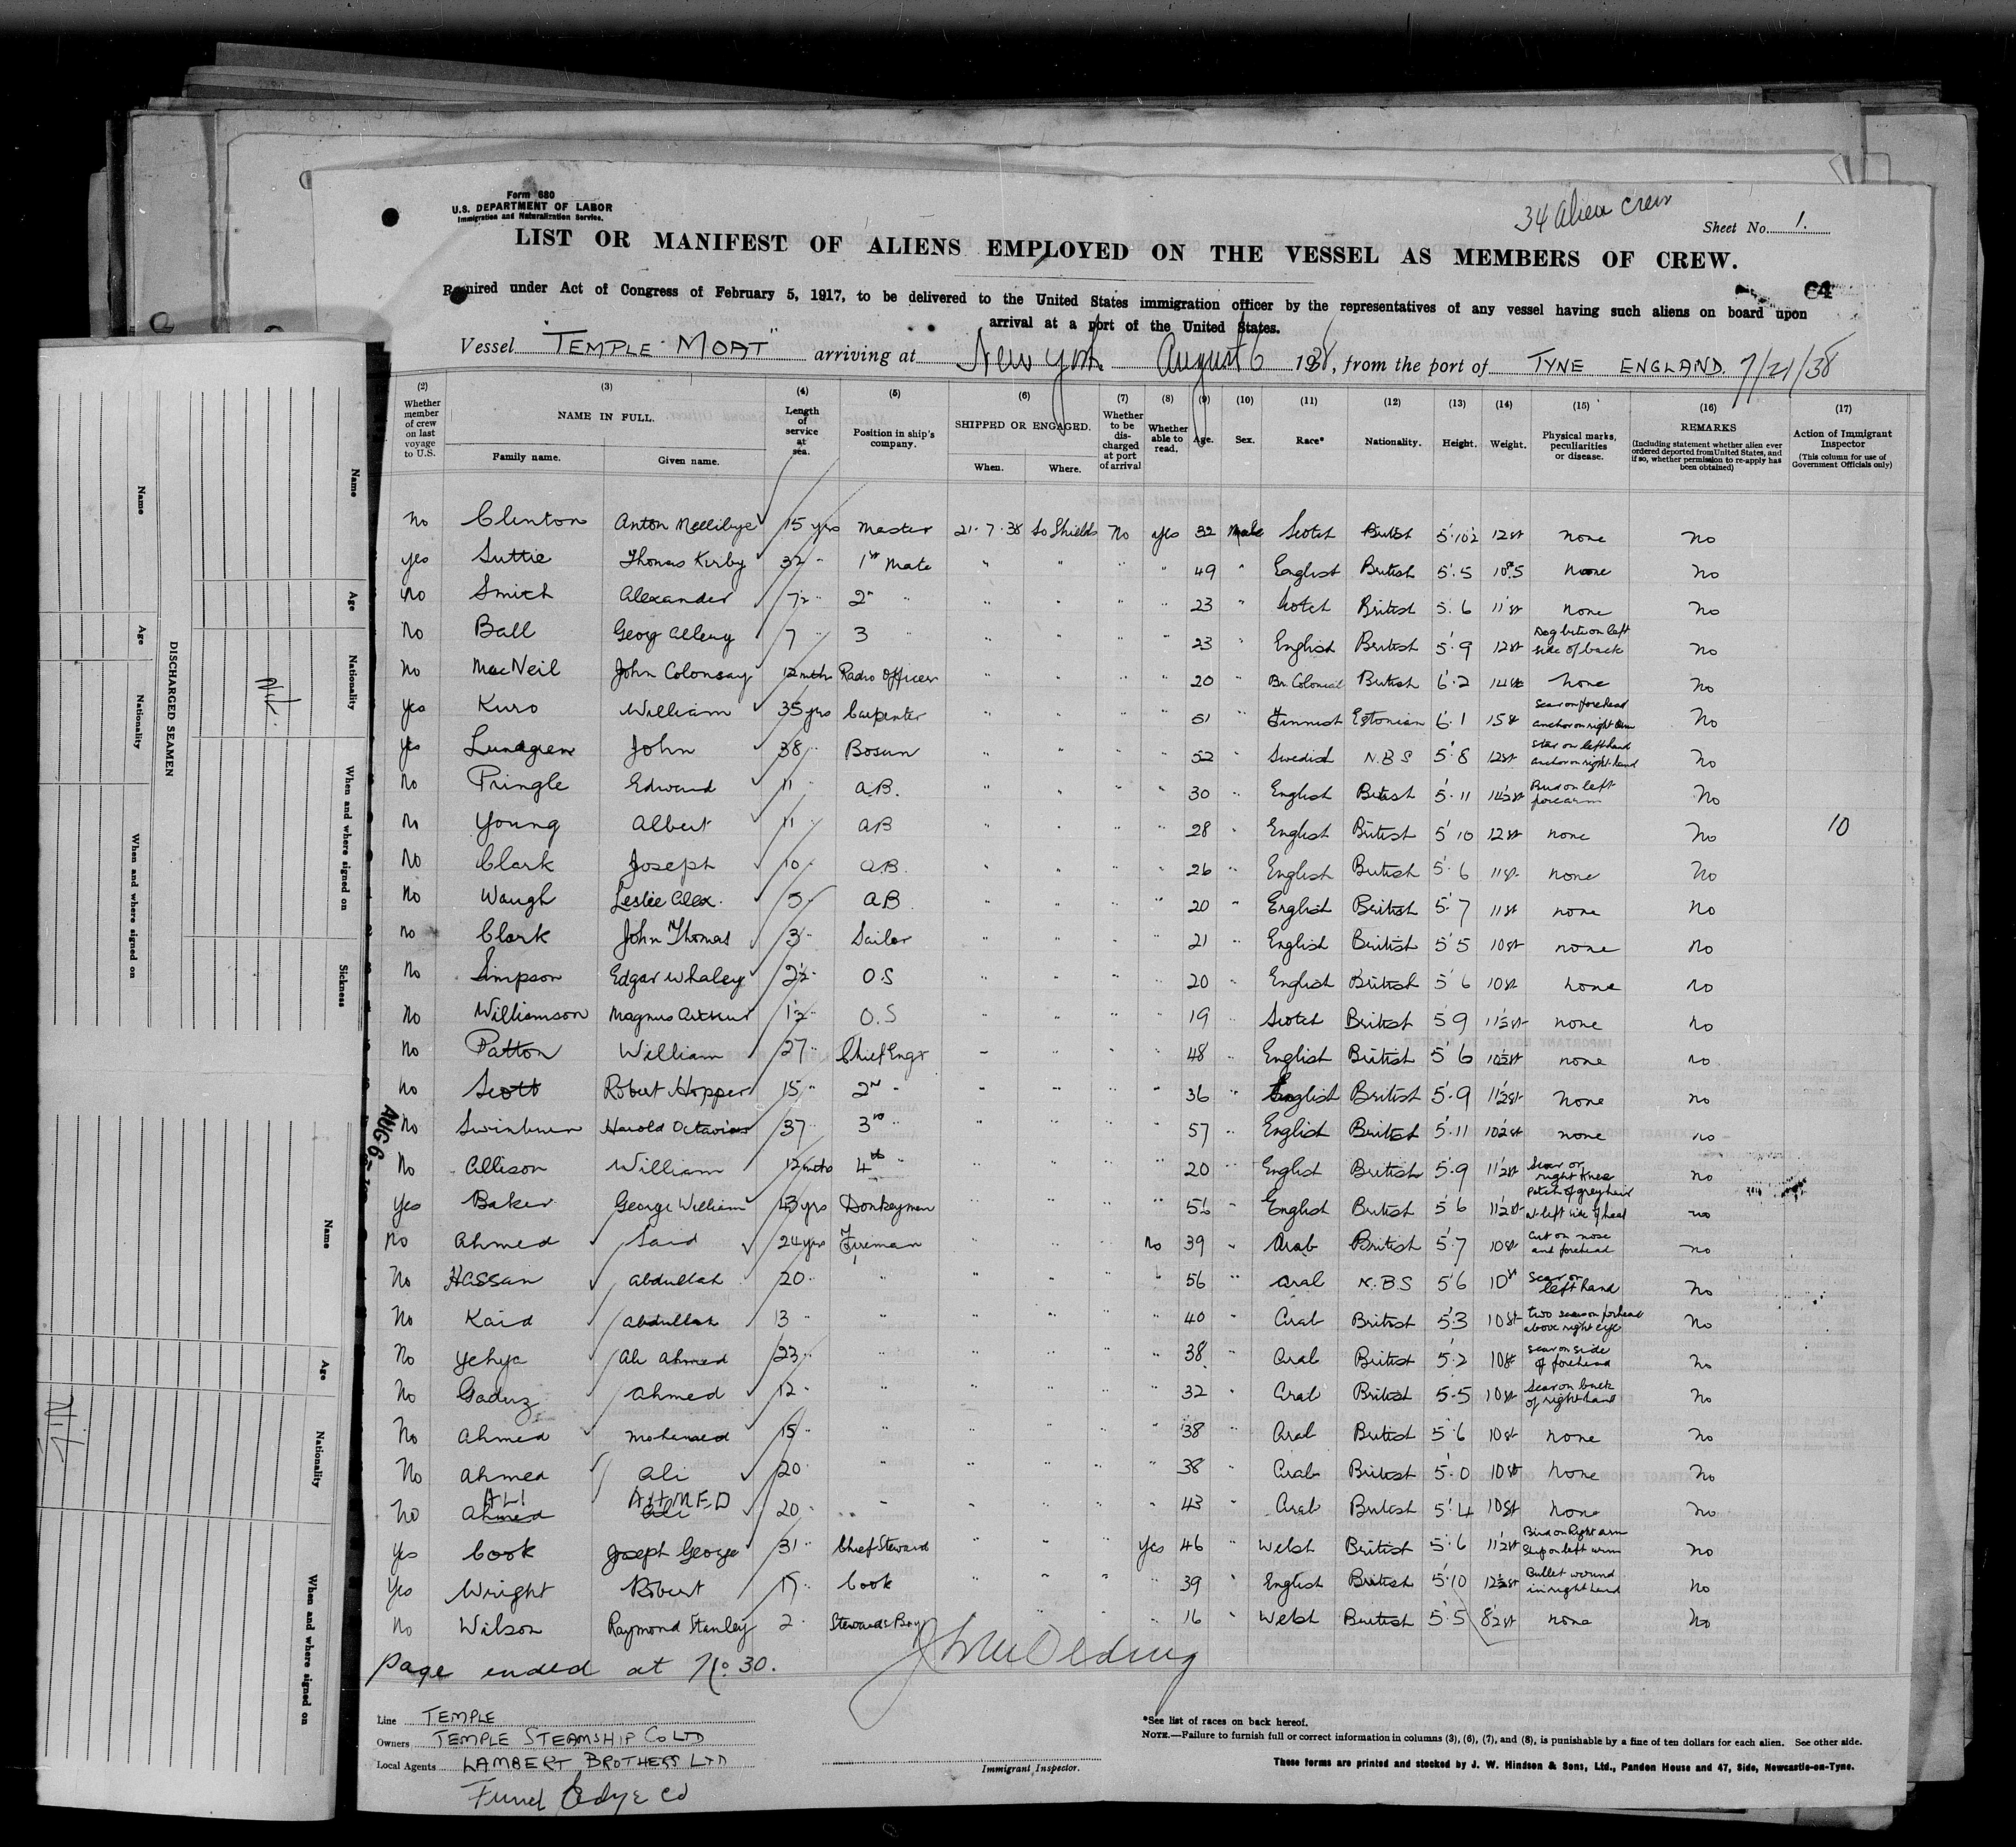 Form 680
U.S. DEPARTMENT OF LABOR
Immigration and Naturalization Service.
34 Alien Crew
Sheet No. 1.
LIST OR MANIFEST OF ALIENS EMPLOYED ON THE VESSEL AS MEMBERS OF CREW.
64
Required under Act of Congress of February 5, 1917, to be delivered to the United States immigration officer by the representatives of any vessel having such aliens on board upon
arrival at a port of the United States.
Vessel "TEMPLE MOAT" arriving at New York August 6 1938, from the port of TYNE ENGLAND. 7/21/38
(2) Whether member of crew on last voyage to U.S.
(3) NAME IN FULL. Family name. Given name.
(4) Length of service at sea.
(5) Position in ship's company.
(6) SHIPPED OR ENGAGED. When. Where.
(7) Whether to be discharged at port of arrival
(8) Whether able to read.
(9) Age.
(10) Sex.
(11) Race*
(12) Nationality.
(13) Height.
(14) Weight.
(15) Physical marks, peculiarities or disease.
(16) REMARKS (Including statement whether alien ever ordered deported from United States, and if so, whether permission to re-apply has been obtained)
(17) Action of Immigrant Inspector (This column for use of Government Officials only)
No Clinton Anton 15 yrs Master 21.7.38 So Shields No yes 32 Male Scotch British 5'10½ 12st none No
yes Suttie Thomas Kirby 32 " 1st Mate " " " " 49 " English British 5'.5 None No
No Smith Alexander 7½ " 2nd " " " " " 23 " Scotch British 5'.6 11st none No
No Ball 7 " 3 " " " " " 23 " English British 5'.9 12st Dog bite on left side of back No
No MacNeil John Colonsay 12 mths Radio Officer " " " " 20 " Br. Colonial British 6'.2 14st None No
yes Kuro William 35 yrs Carpenter " " " " 51 " Finnish Estonian 6'.1 15st Scar on forehead anchor on right arm No
yes Lundgren John 38 " Bosun " " " " 52 " Swedish N.B.S 5'.8 12st Star on left hand anchor on right hand No
No Pringle Edward 11 " A.B. " " " " 30 " English British 5'.11 11½st Bird on left forearm No
No Young Albert 11 " AB " " " " 28 " English British 5'10 12st none No 10
No Clark Joseph 10 " A.B. " " " " 26 " English British 5'.6 11st none No
No Waugh Leslie Alex. 5 " AB " " " " 20 " English British 5'.7 11st none No
No Clark John Thomas 3 " Sailor " " " " 21 " English British 5'5 10st none No
No Simpson Edgar Whaley 2½ " O.S " " " " 20 " English British 5'6 10st none No
No Williamson Magnus Arthur 1½ " O.S " " " " 19 " Scotch British 5'9 11½st none No
No Patton William 27 " Chief Engr " " " " 48 " English British 5'6 10½st none No
No Scott Robert Hopper 15 " 2nd " " " " " 36 " English British 5'.9 11½st None no
No Swinburn Harold Octavius 37 " 3rd " " " " " 57 " English British 5'.11 10½st none no
No Allison William 12 mths 4th " " " " " 20 " English British 5'.9 11½st Scar on right knee no
Yes Baker George William 43 yrs Donkeyman " " " " 56 " English British 5'6 11½st patch of grey hair at left side of head no
No Ahmed Said 24 yrs Fireman " " " No 39 " Arab British 5'.7 10st Cut on nose and forehead no
No Hassan Abdullah 20 " " " " " " 56 " Arab N.B.S 5'6 10st Scar on left hand No
No Kaid Abdullah 3 " " " " " " 40 " Arab British 5'.3 10st two scars on forehead above right eye No
No Yehya Ali Ahmed 23 " " " " " " 38 " Arab British 5'.2 10st scar on side of forehead No
No Ahmed 12 " " " " " " 32 " Arab British 5'.5 10st Scar on back of right hand No
No Ahmed Mohamed 15 " " " " " " 38 " Arab British 5'.6 10st none No
No Ahmed Ali 20 " " " " " " 38 " Arab British 5'.0 10st None No
ALI AHMED
No Ahmed Ali 20 " " " " " " 43 " Arab British 5'.4 10st None No
Yes Cook Joseph George 31 " Chief Steward " " " Yes 46 " Welsh British 5'.6 11½st Bird on Right arm Ship on left arm No
Yes Wright Robert 17 " Cook " " " " 39 " English British 5'.10 12½st Bullet wound in right hand No
No Wilson Raymond Stanley 2 " Stewards Boy " " " 16 " Welsh British 5'.5 8½st none No
Page ended at No 30.
Line TEMPLE
Owners TEMPLE STEAMSHIP Co LTD
Local Agents LAMBERT BROTHERS LTD
Immigrant Inspector.
*See list of races on back hereof.
NOTE.—Failure to furnish full or correct information in columns (3), (6), (7), and (8), is punishable by a fine of ten dollars for each alien. See other side.
These forms are printed and stocked by J. W. Hindson & Sons, Ltd., Pandon House and 47, Side, Newcastle-on-Tyne.
AUG 6-
DISCHARGED SEAMEN
Name
Age
Nationality
When and where signed on
Sickness
Name
Age
Nationality
When and where signed on
Nil.
Name
Age
Nationality
When and where signed on
Nil